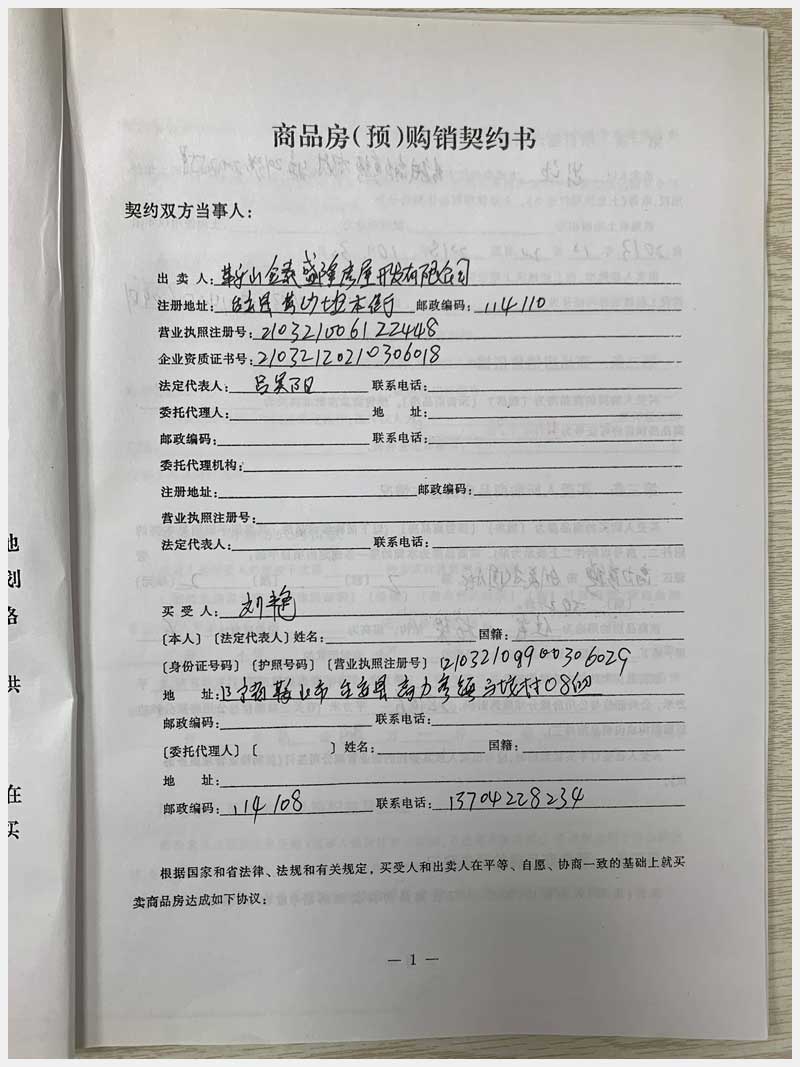 商品房(预)购销契约书
契约双方当事人:
出卖人:鞍山金泰盛隆房屋开发有限公司
注册地址: 邮政编码:114110
营业执照注册号:210321006122448
企业资质证书号:21032120210306018
法定代表人:吕 联系电话:
委托代理人: 地 址:
邮政编码: 联系电话:
委托代理机构:
注册地址: 邮政编码:
营业执照注册号:
法定代表人: 联系电话:
买受人:刘艳
〔本人〕〔法定代表人〕姓名: 国籍:
〔身份证号码〕〔护照号码〕〔营业执照注册号〕
地 址:辽宁省鞍山市台安县高力房镇 村
邮政编码: 联系电话:
〔委托代理人〕〔 〕姓名: 国籍:
地 址:
邮政编码:114108 联系电话:13704228234
根据国家和省法律、法规和有关规定,买受人和出卖人在平等、自愿、协商一致的基础上就买
卖商品房达成如下协议:
— 1 —
他
划
格
共
在
买